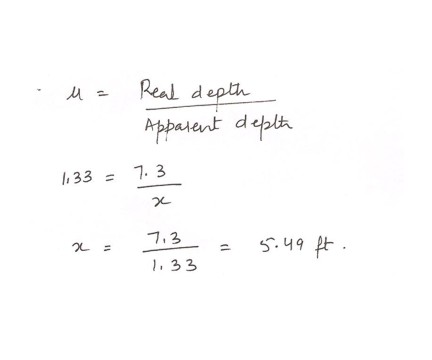 μ = Real depth / Apparent depth
1.33 = 7.3 / x
x = 7.3 / 1.33 = 5.49 ft.